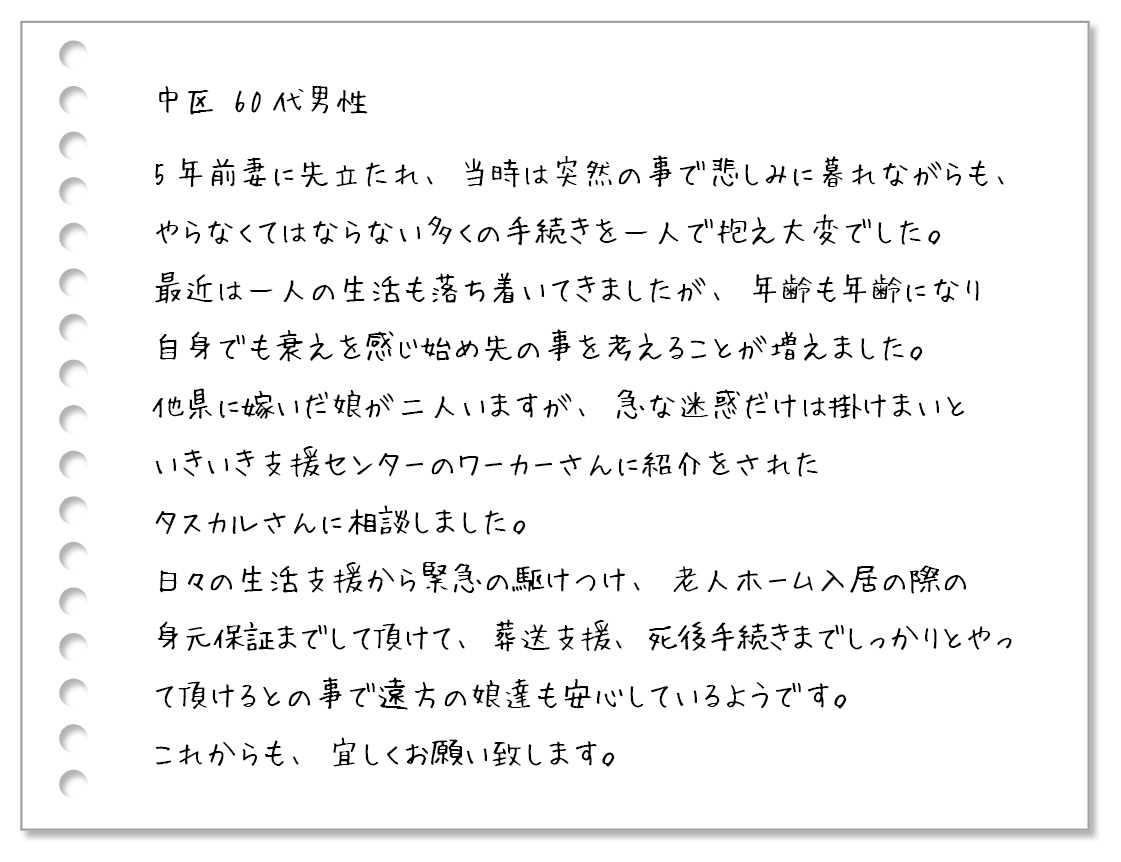 中区 60代男性
5年前妻に先立たれ、当時は突然の事で悲しみに暮れながらも、
やらなくてはならない多くの手続きを一人で抱え大変でした。
最近は一人の生活も落ち着いてきましたが、年齢も年齢になり
自身でも衰えを感じ始め先の事を考えることが増えました。
他県に嫁いだ娘が二人いますが、急な迷惑だけは掛けまいと
いきいき支援センターのワーカーさんに紹介をされた
タスカルさんに相談しました。
日々の生活支援から緊急の駆けつけ、老人ホーム入居の際の
身元保証までして頂けて、葬送支援、死後手続きまでしっかりとやっ
て頂けるとの事で遠方の娘達も安心しているようです。
これからも、宜しくお願い致します。